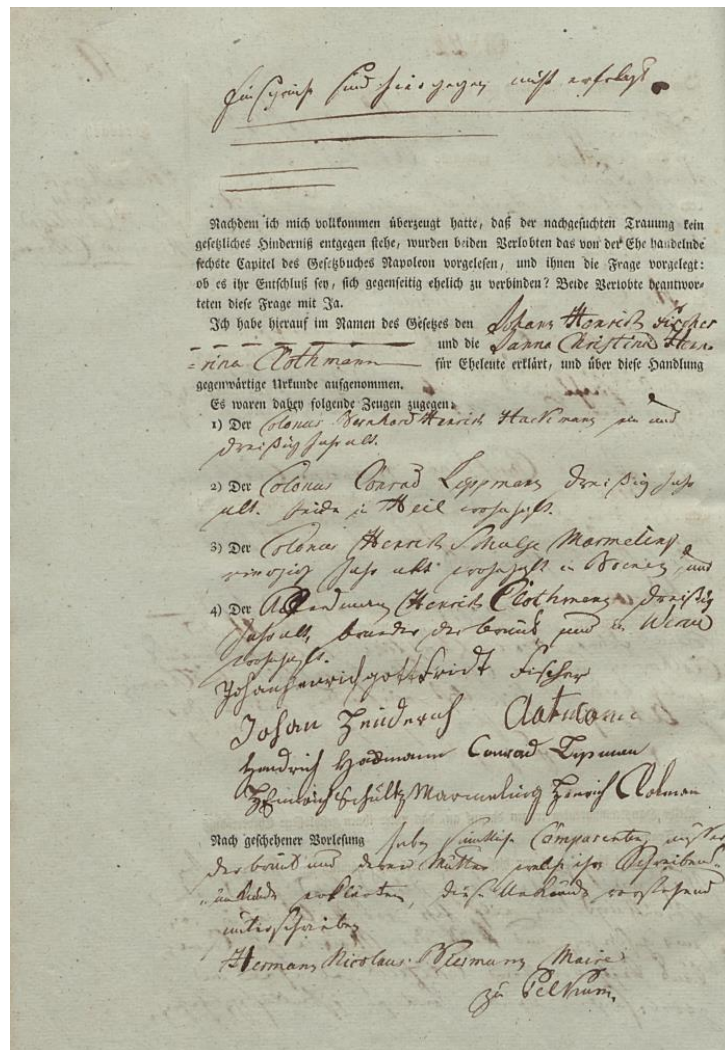 Einsprüche sind hiergegen nicht erfolgt.
Nachdem ich mich vollkommen überzeugt hatte, daß der nachgesuchten Trauung kein
gesetzliches Hinderniß entgegen stehe, wurden beiden Verlobten das von der Ehe handelnde
sechste Capitel des Gesetzbuches Napoleon vorgelesen, und ihnen die Frage vorgelegt:
ob es ihr Entschluß sey, sich gegenseitig ehelich zu verbinden? Beide Verlobte beantwor-
teten diese Frage mit Ja.
Ich habe hierauf im Namen des Gesetzes den Johann Henrich Fischer
und die Janna Christina Hen-
rina Clothmann für Eheleute erklärt, und über diese Handlung
gegenwärtige Urkunde aufgenommen.
Es waren dabey folgende Zeugen zugegen:
1) Der Colonus Bernhard Henrich Hackmann ein und
dreißig Jahr alt.
2) Der Colonus Conrad Lippmann dreißig Jahr
alt. beide in Heil wohnhaft.
3) Der Colonus Henrich Schulze Marmeling
vierzig Jahr alt wohnhaft in und
4) Der Henrich Clothmann dreißig
Jahr alt, bruder der braut, und in Werne
wohnhaft.
Johan henrich gottfridt Fischer
Johan Henderich
Hendrich Hackmann Conrad Lipman
Heinrich Schultz Marmeling Henrich Clotman
Nach geschehener Vorlesung haben sämtliche Comparenten außer
der braut und deren Mutter welche ihre Schreibens-
unkunde erklärten, diese Urkunde vorstehend
unterschrieben
Hermann Nicolaus Biermann Maire
zu Pelkum.